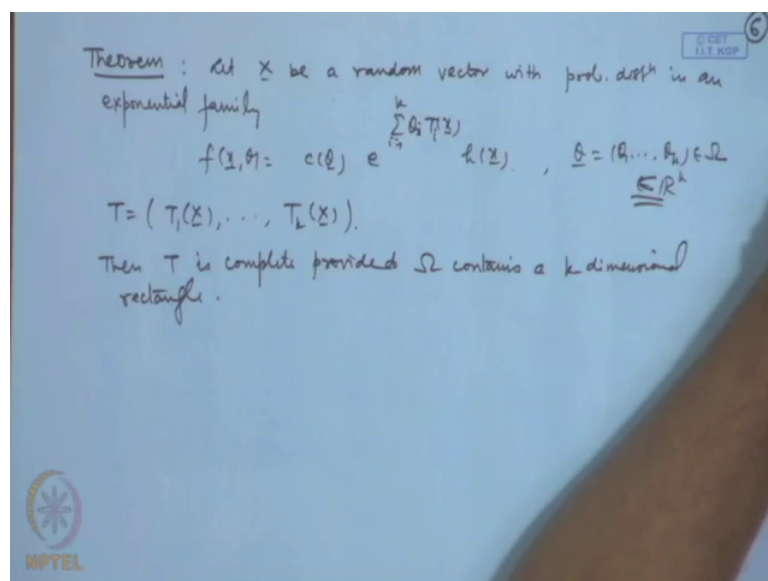 6
© CET
I.I.T. KGP
Theorem : Let X be a random vector with prob. distⁿ in an
exponential family
f(x, θ) = c(θ) e^{∑_{i=1}^{k} θ_i T_i(x)} h(x) , θ = (θ_1 ... θ_k) ∈ Ω
⊆ ℝ^k
T = ( T_1(X), ..., T_k(X) ).
Then T is complete provided Ω contains a k dimensional
rectangle.
NPTEL